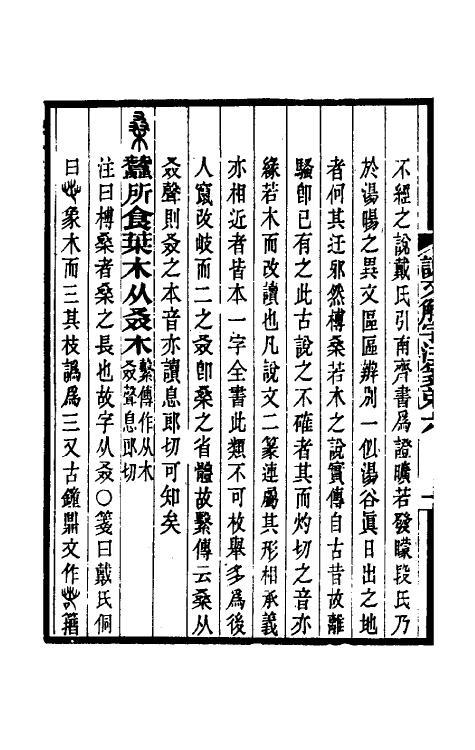 不經之說戴氏引南齊書爲證曠若發矇段氏乃
於湯暘之異文區區辨別一似湯谷眞日出之地
者何其迂邪然榑桑若木之說實傳自古昔故離
騷卽已有之此古說之不確者其而灼切之音亦
緣若木而改讀也凡說文二篆連屬其形相承義
亦相近者皆本一字全書此類不可枚舉多爲後
人竄改歧而二之叒卽桑之省體故繫傳云桑从
叒聲則叒之本音亦讀息郎切可知矣
桑 蠶所食葉木从叒木 繫傳作从木叒聲息郎切
注曰榑桑者桑之長也故字从叒○箋曰戴氏侗
曰 象木而三其枝譌爲三又古鐘鼎文作 籒
說文解字注箋第六